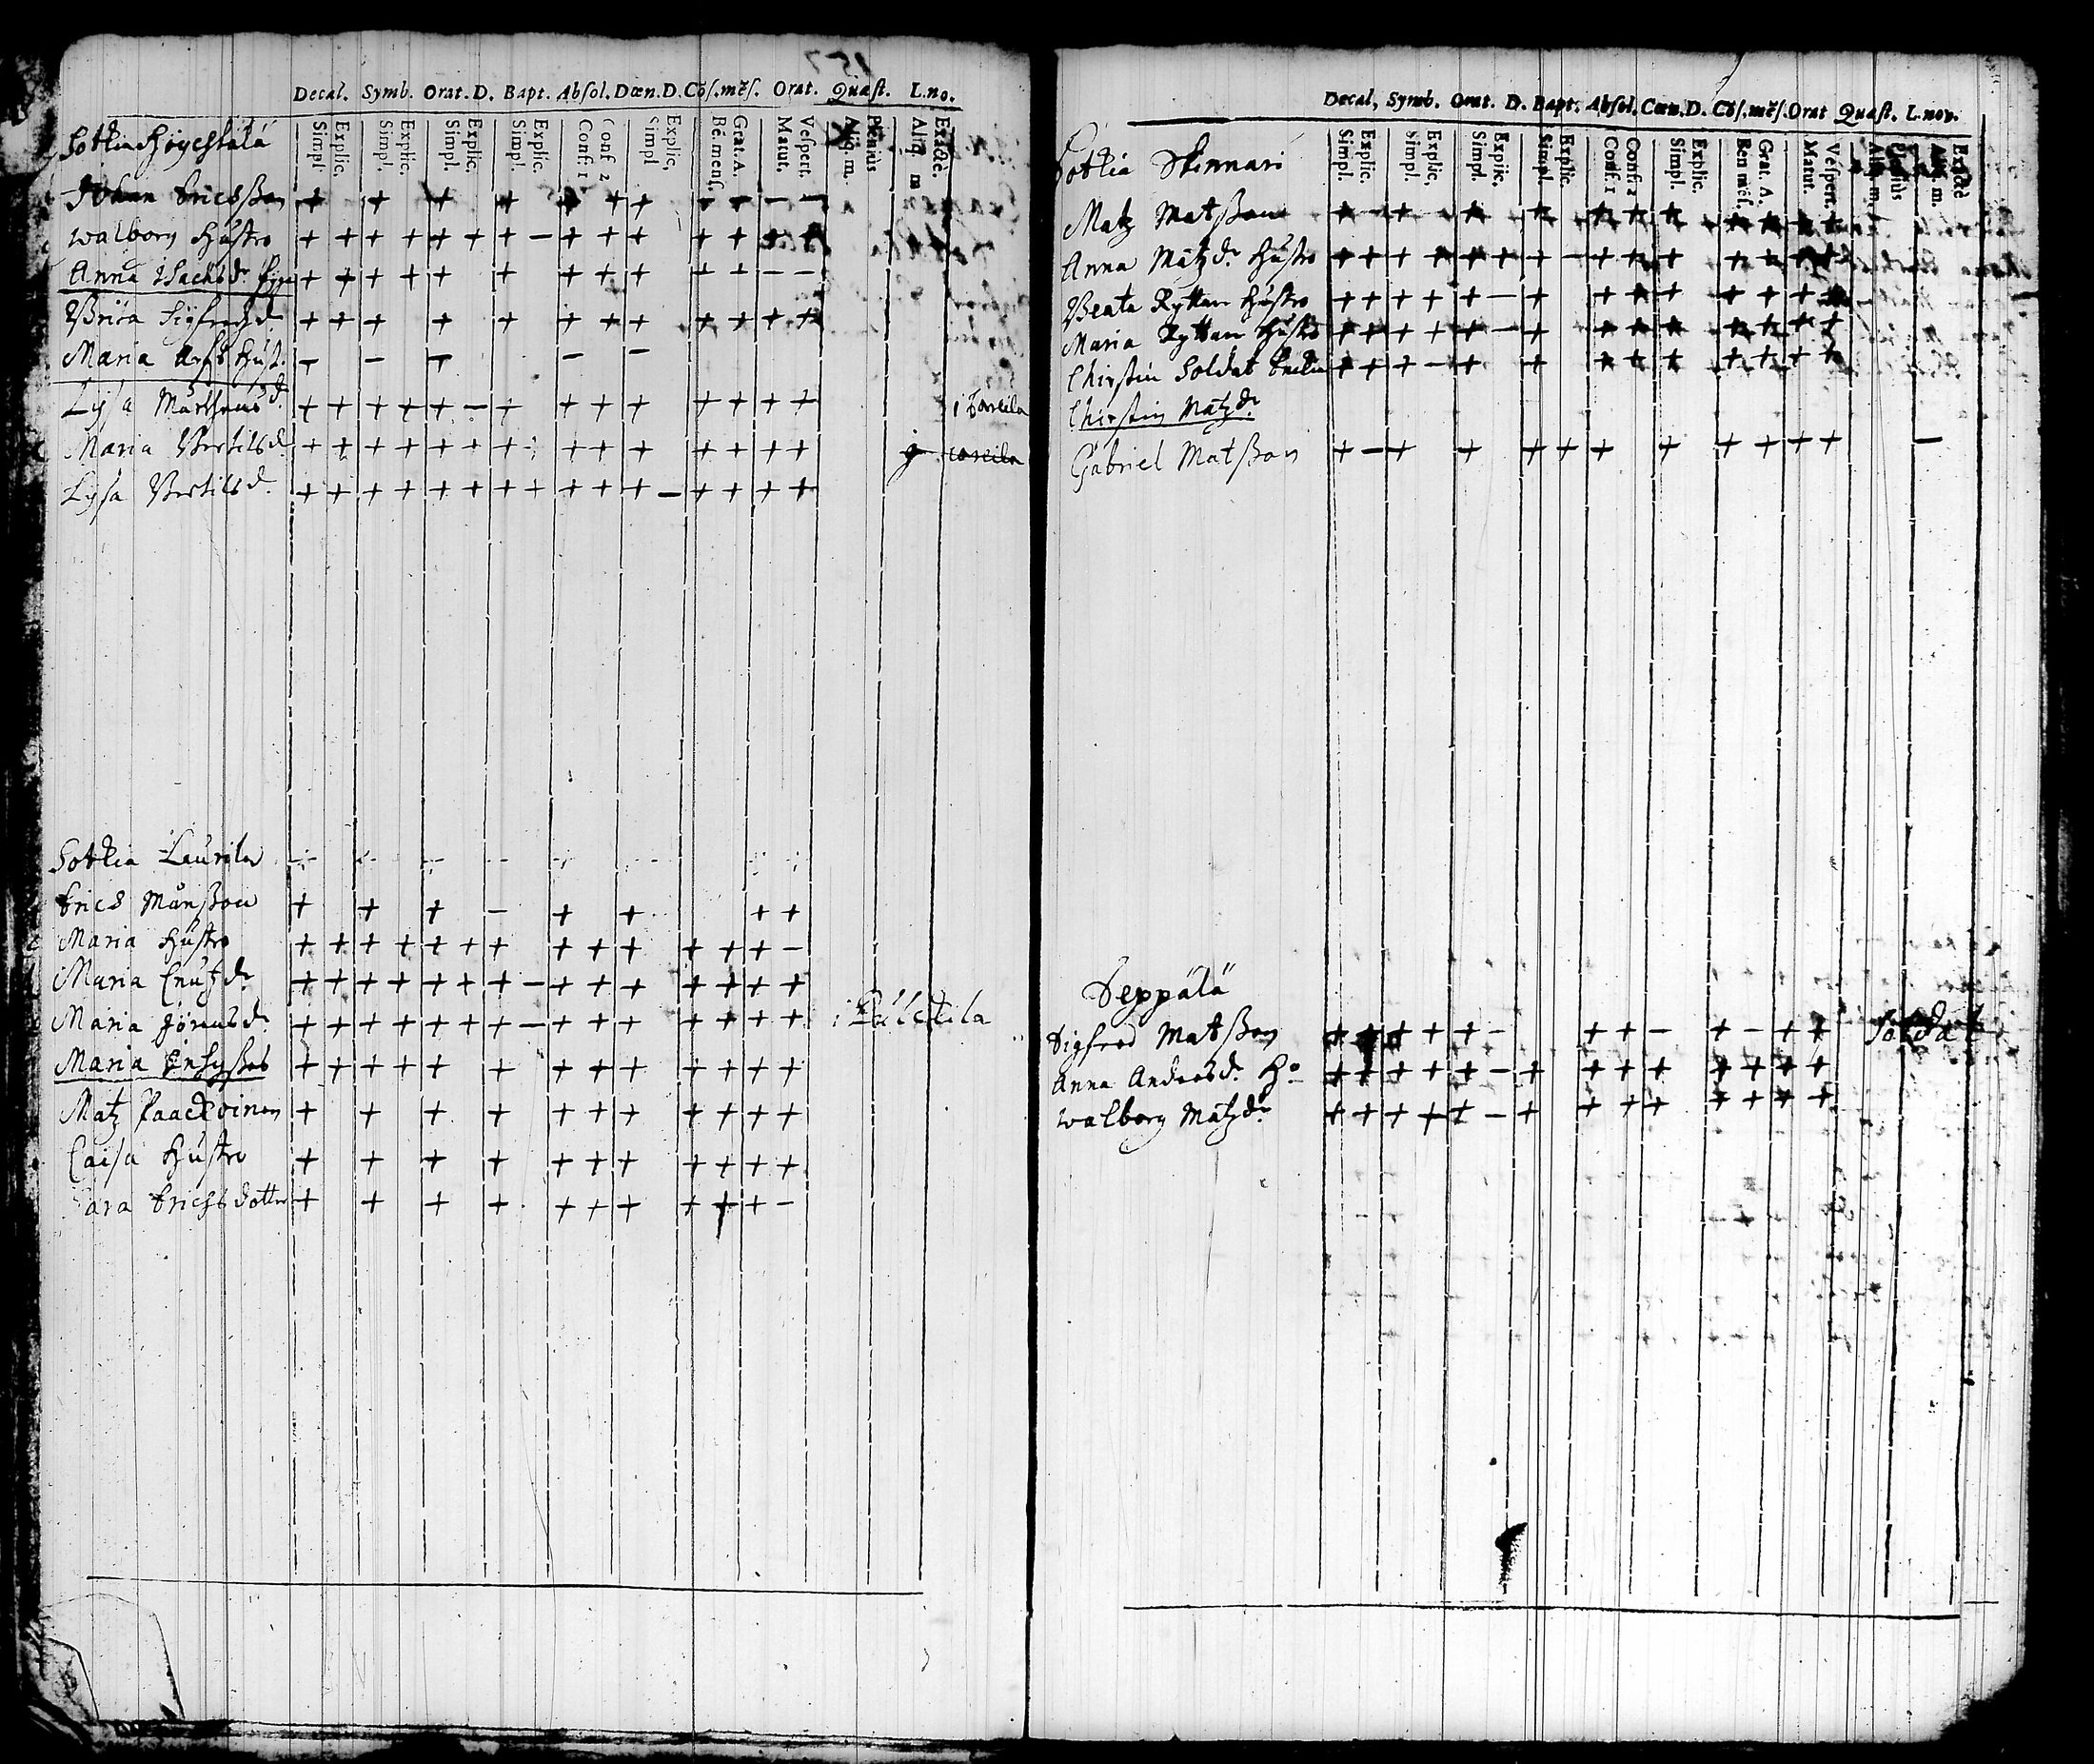 157
Decal. Symb. Orat. D. Bapt. Absol. Dœn. D. Cōs. mēs. Orat. Quæst. L. no.
Simpl. Explic. Simpl. Explic. Simpl. Explic. Simpl. Explic. Conf. 1 Conf 2 Simpl Explic. Bē. mens. Grat. A. Matut. Vespert. Aliq. m. Plenius Aliq. m Exactè.
Sotkia
Johan Ericsßon + + + + + + + + + — —
Walborg Hustro + + + + + + + — + + + + + + +
Anna Isachsdr + + + + + + + + + + + — —
Brita Sigfredzdr + + + + + + + + + + + +
Maria Hust. — — — — —
Lysa Mårthensdr + + + + + — + + + + + + + + i Eareila
Maria Bertilsdr + + + + + + + + + + + + + + +
Lysa Bertilsdr + + + + + + + + + + + — + + + +
Sotkia Laurila
Erics Månßon + + + — + + + +
Maria Hustro + + + + + + + + + + + + + —
Maria Cnutzdr + + + + + + + — + + + + + + +
Maria Jöransdr + + + + + + + — + + + + + + +
Maria + + + + + + + + + + + + +
Matz Paackoinen + + + + + + + + + + +
Caisa Hustro + + + + + + + + + + +
Ericksdotter + + + + + + + + + + —
Decal, Symb. Orat. D. Bapt. Absol. Cœn. D. Cōs. mēs. Orat Quæst. L. nov.
Simpl. Explic. Simpl. Explic. Simpl. Explic. Simpl. Explic. Conf. 1 Conf. 2 Simpl. Explic. Ben mēs. Grat. A. Matut. Vespert. Aliq. m. Plenius Aliq. m. Exactè
Sotkia Skinnari
Matz Matßon + + + + + + + + + + +
Anna Matzdr Hustro + + + + + + + — + + + + + + +
Beata Ryttar Hustro + + + + + — + + + + + + + +
Maria Ryttar Hustro + + + + + — + + + + + + + +
Chirstin Soldat + + + — + + + + + + + + +
Chirstin Matzdr
Gabriel Matßon + — + + + + + + + + + + —
Seppälä
Sigfred Matßon + + + + + — + + — + — + + Soldat
Anna Andersdr Ho + + + + + — + + + + + + + +
Walborg Matzdr + + + + + — + + + + + + + +